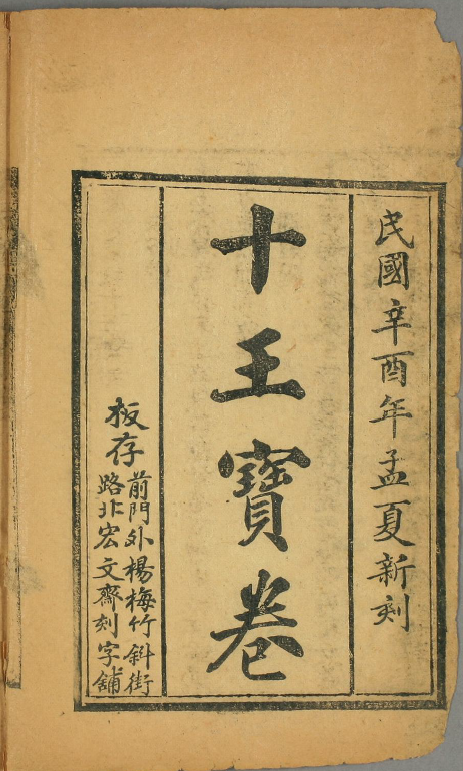 民國辛酉年孟夏新刻
十王寶卷
板存
前門外楊梅竹斜街
路北宏文齋刻字舖